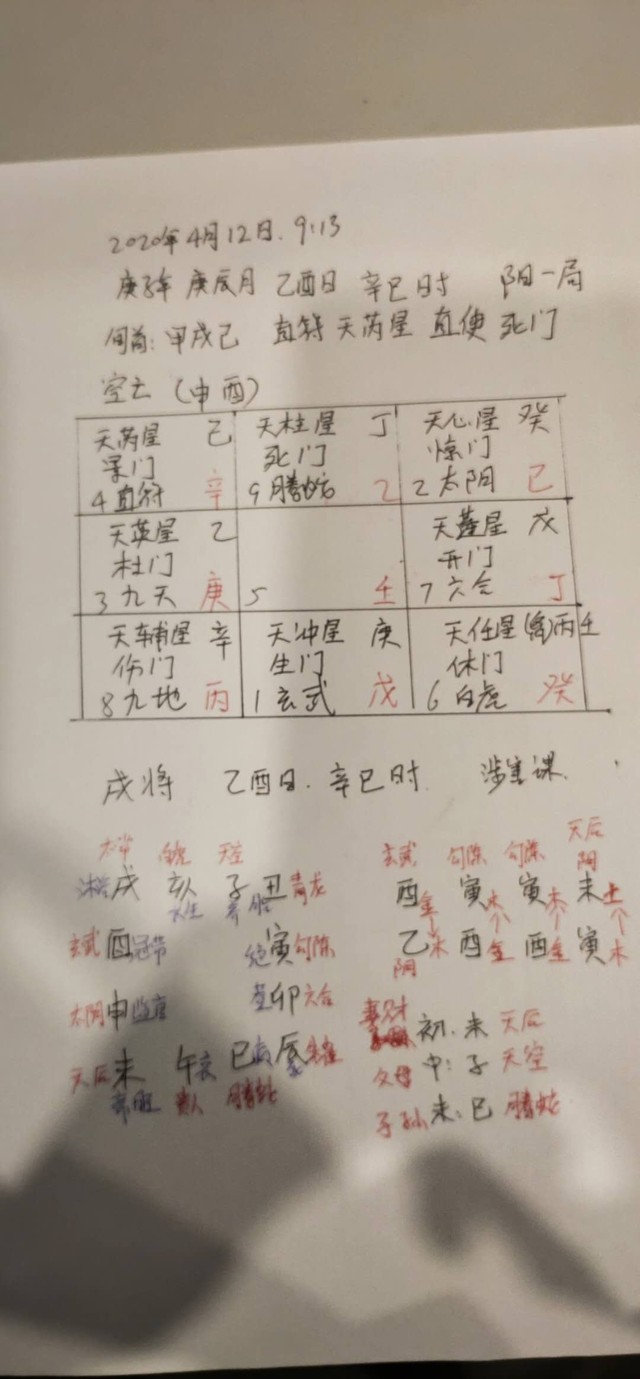 2020年4月12日. 9:13
庚子年 庚辰月 乙酉日 辛巳时 阳一局
旬首: 甲戌己 直符 天芮星 直使 死门
空亡 (申酉)
天芮星 己 天柱星 丁 天心星 癸
景门 死门 惊门
4 直符 辛 9 腾蛇 乙 2 太阴 己
天英星 乙 天蓬星 戊
杜门 开门
3 九天 庚 5 壬 7 六合 丁
天辅星 辛 天冲星 庚 天任星 丙壬
伤门 生门 休门
8 九地 丙 1 玄武 戊 6 白虎 癸
戌将 乙酉日. 辛巳时. 涉害课.
天后
太常 白虎 天空 玄武 勾陈 勾陈 阴
沐浴 戌 亥 子 丑 青龙 酉 金 寅 木 寅 木 未 土
长生 养 胎
玄武 酉 冠带 绝 寅 勾陈 乙 木 酉 金 酉 金 寅 木
阴
太阴 申 临官 墓 卯 六合
妻财 初. 未 天后
天后 未 午 衰 巳 病 辰 朱雀 父母 中: 子 天空
帝旺 贵人 腾蛇
子孙 末: 巳 腾蛇